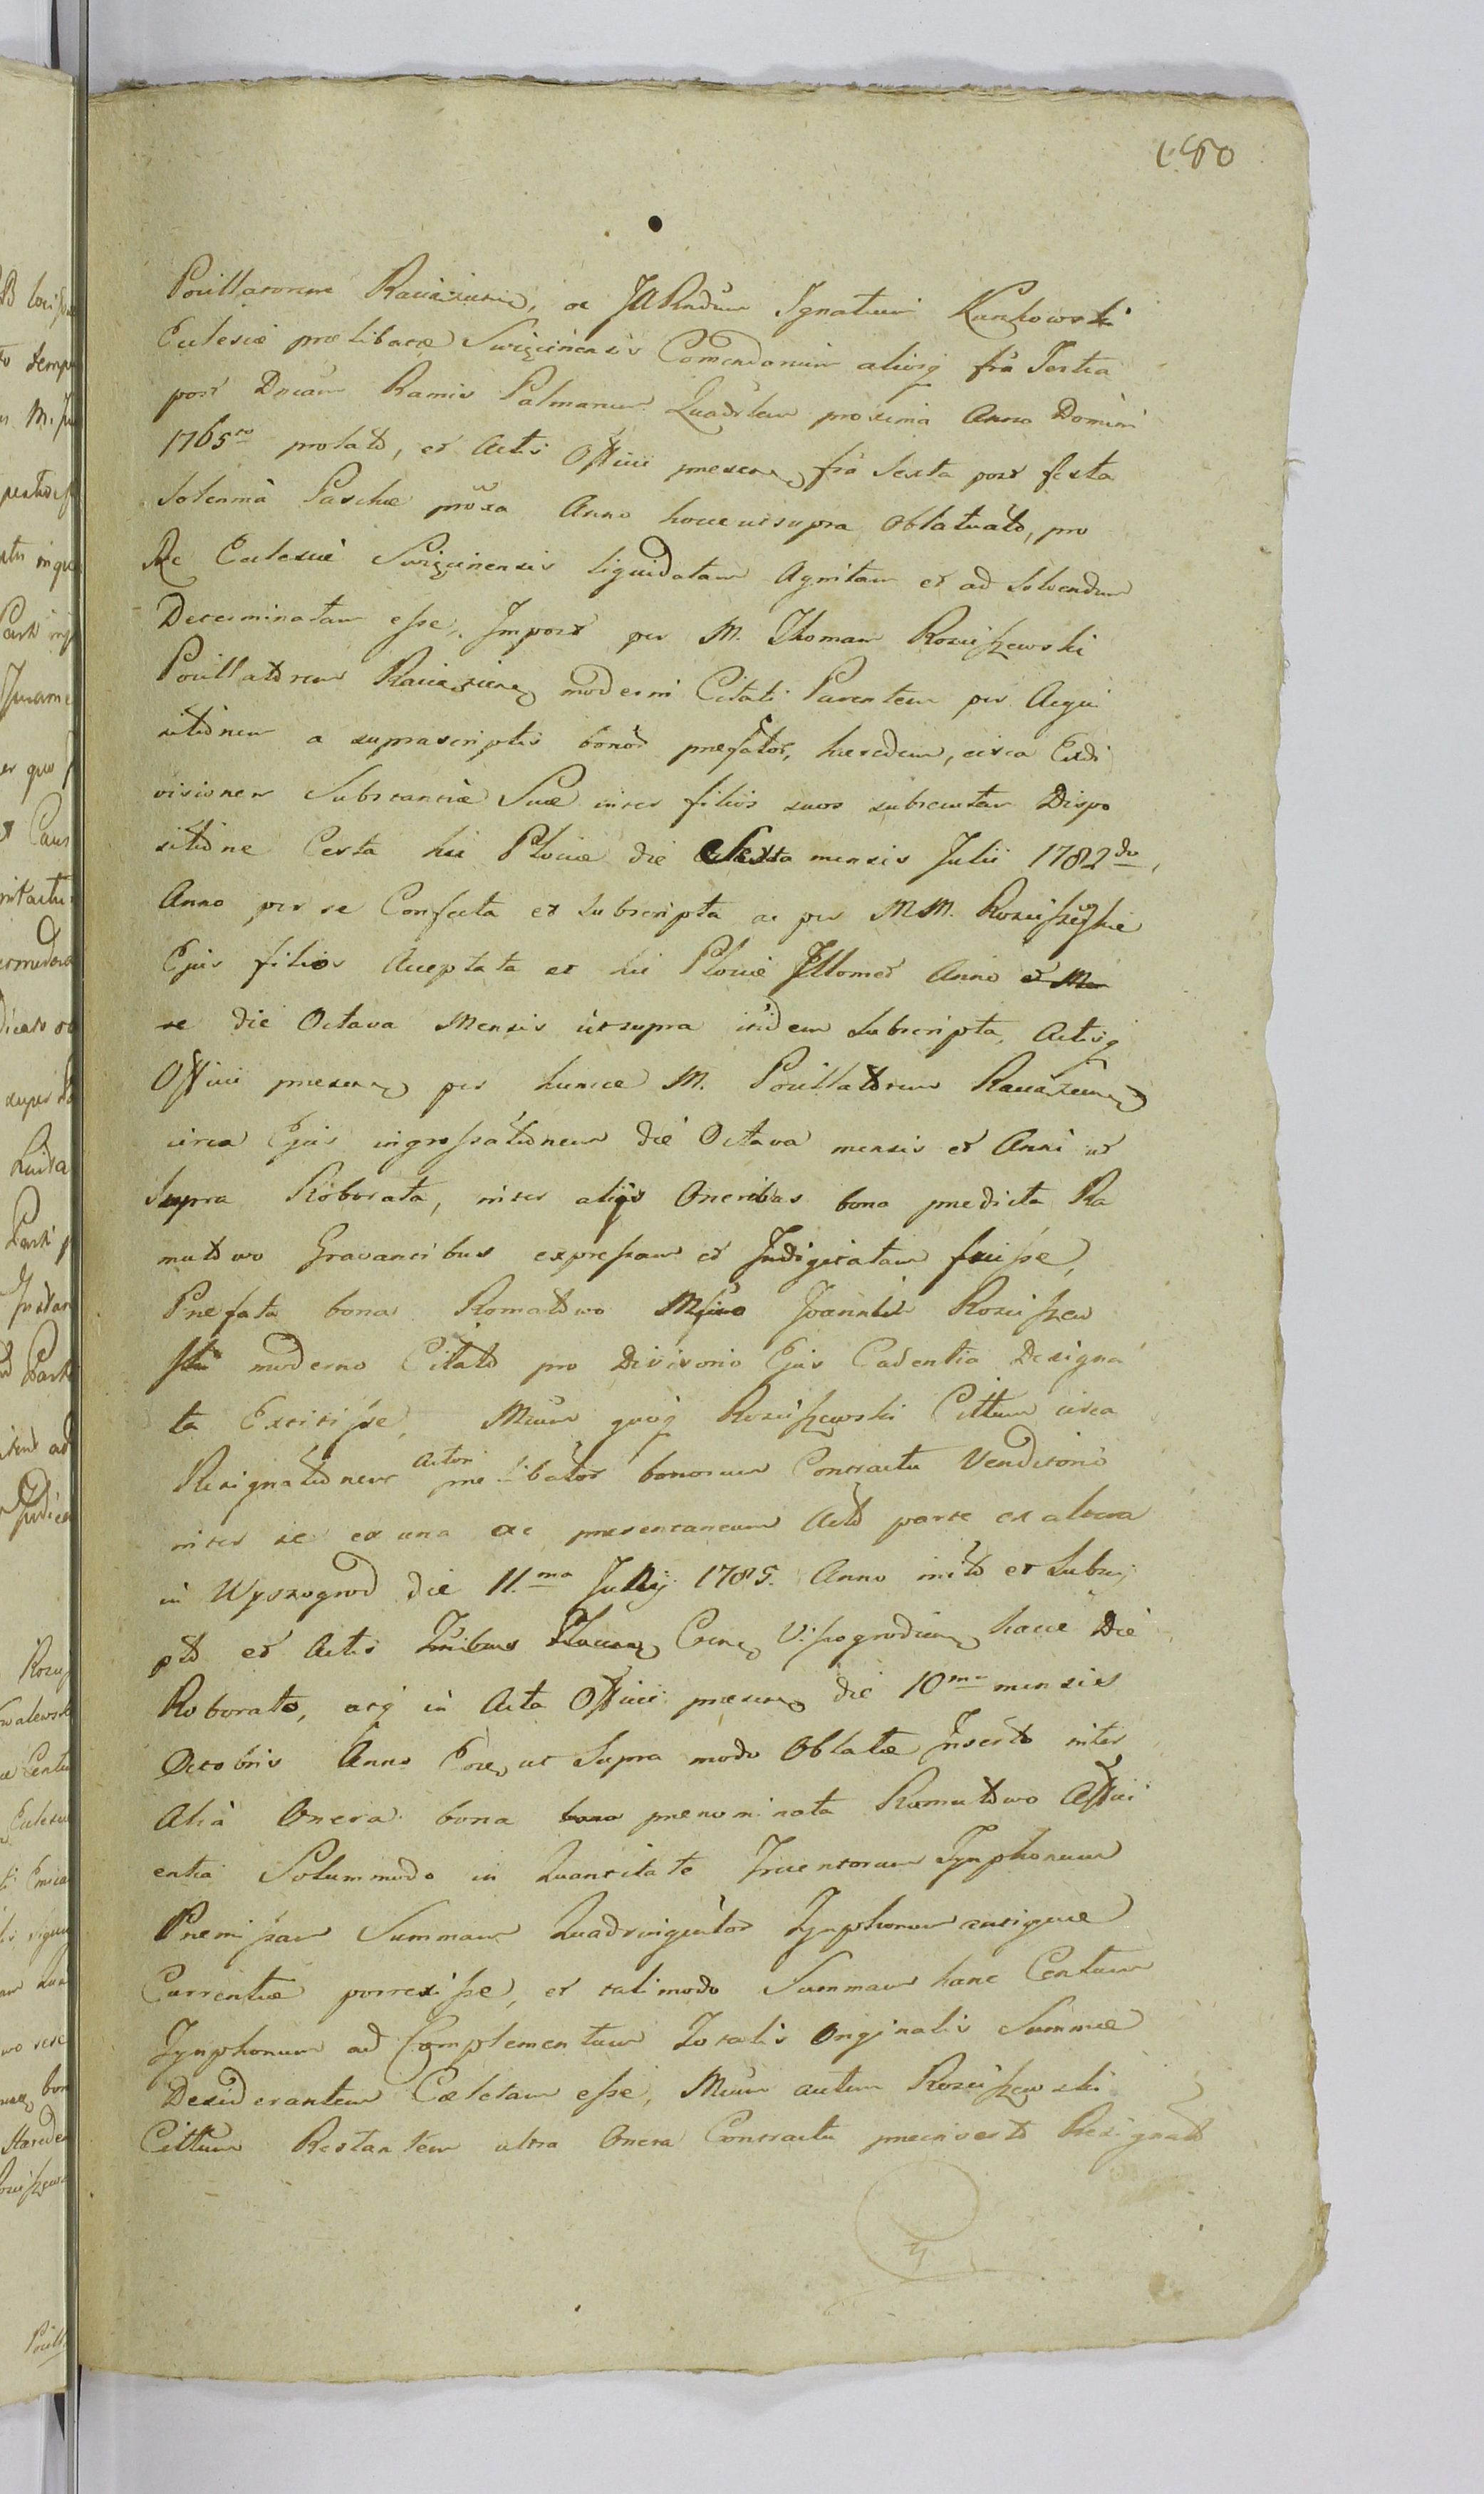 180
Pocillatorem Raciążens, ac JARndum Ignatium Kurkowski
Eclesiæ prælibatæ Swięcinensis Comendarium aliosq fra Tertia
post Dncam Ramis Palmarum Quadrlem proxima Anno Domini
1765to prolato, et Actis Officii presen fra Sexta post festa
Solennia Paschæ proxa Anno hocce utsupra Oblatuato, pro
Re Eclesiæ Swięcinensis liquidatam Agnitam et ad Solvendum
Determinatam esse, Impost per M. Thomam Rosciszewski
Pocillatorem Raciążens moderni Citati Parentem per Acqui
sitionem a suprascriptis bonor prefator, hæredem, circa Exdi
visionem Substantiæ Suæ inter filios suos subsecutam Dispo
sitione Certa hic Plociæ die Sexta mensis Julii 1782do,
Anno per se Confecta et Subscripta ac per MM. Rosciszewskie
Ejus filios Acceptata et hic Plociæ Illomet Anno et Men
se die Octava Mensis utsupra itidem Subscripta, Actisq
Officii presen per hunce M. Pocillatorem Raciążens
circa Ejus ingrossationem die Octava mensis et Anni ut
Supra Roborata, inter aliis Oneribus bona predicta Ra
mutowo Gravantibus expressam et Indigitatam fuisse,
Prefata bona Romatowo Mfico Joanni Rosciszew
ski moderno Citato pro Divisorio Ejus Cadentia Designa
ta Extitisse, Mcum quoq Rosciszewski Cittum circa
Resignationem Actori prælibator bonorum Contractu Venditorio
inter se ex una ac presentaneum Actō parte ex altera
in Wyszogrod die 11.ma Julij 1785. Anno inito et Subscri
pto et Actis Cren Vissogrodien hacce Die
Roborato, atq in Acta Officii presen die 10ma mensis
Octobris Anno ut Supra modo Oblatæ Inserto inter
Alia Onera bona bona prenominata Romutowo Affici
entia Solummodo in Quantitate Trecentorum Tynphonum
Premissam Summam Quadringentor Tynphonum antiquæ
Currentiæ porrexisse, et tali modo Summam hanc Centum
Tynphonum ad Complementum Totalis Originalis Summæ
Desiderantem Cælatam esse, Mcum autem Rosciszewski
Cittum Restantem ultra Onera Contractu preinserto Resignato